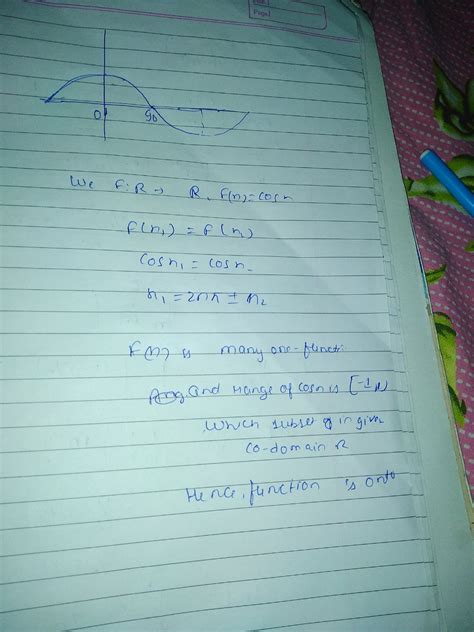 Page
0 90
We F: R → R, F(n) = cosn
F(n₁) = F(n₂)
Cosn₁ = cosn
n₁ = 2nπ ± n₂
F(n) is many one-functi
and Range of cosn is [-1,1]
Which subset of in given
co-domain R
Hence, function is onto